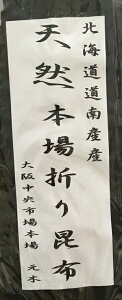 北海道道南産産
天然本場折り昆布
大阪中央市場本場 元木